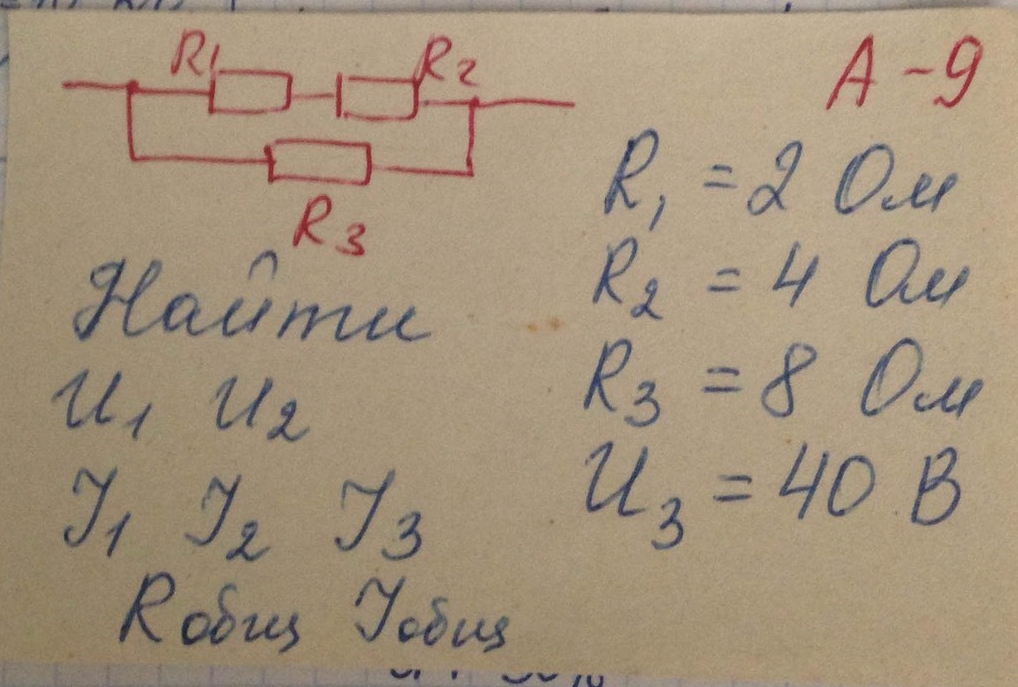 R1 R2
R3
A-9
R1 = 2 Ом
R2 = 4 Ом
R3 = 8 Ом
U3 = 40 В
Найти
U1 U2
I1 I2 I3
Rобщ Iобщ